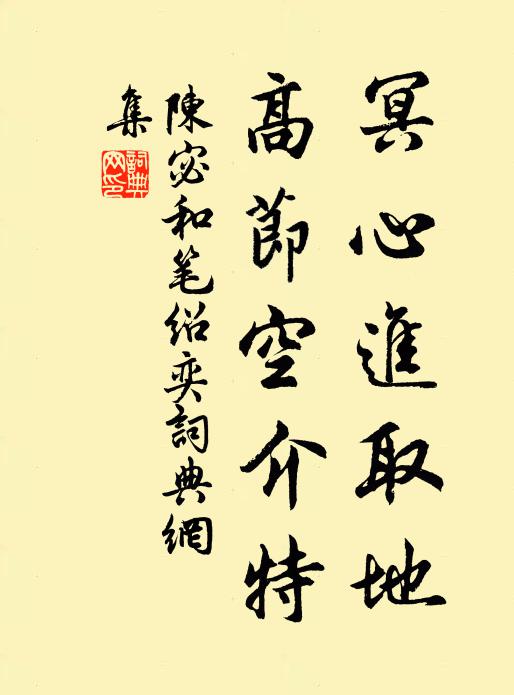 冥心進取地
高節空介特
陳宓和笔紹奕詞典網
集
詞典网印